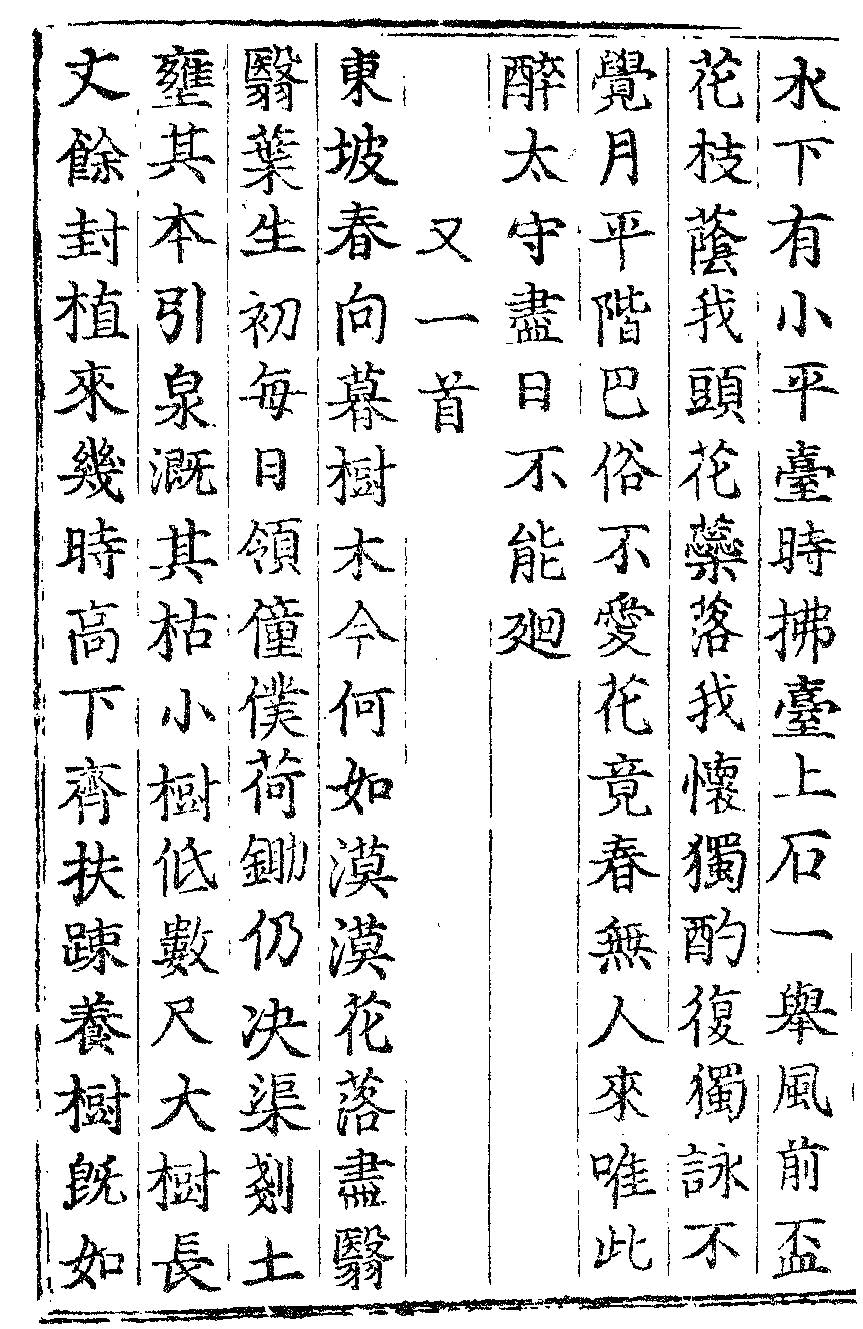 水下有小平臺時拂臺上石一舉風前盃
花枝蔭我頭花蘂落我懷獨酌復獨詠不
覺月平階巴俗不愛花竟春無人來唯此
醉太守盡日不能廻
又一首
東坡春向暮樹木今何如漠漠花落盡翳
翳葉生初每日領僮僕荷鋤仍决渠剗土
壅其本引泉溉其枯小樹低數尺大樹長
丈餘封植來幾時高下齊扶踈養樹旣如